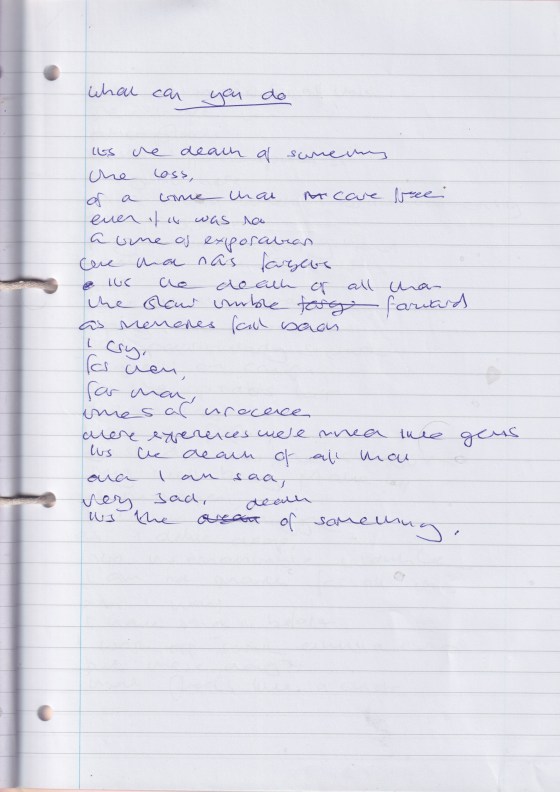 What can you do
its the death of something
the loss,
of a time that care free
even if it was not
a time of exploration
one that has forgotten
its the death of all that
the slow tumble forward
as memories fall down
I cry,
for then,
for that,
times of inocence
where experiences were mined like gems
its the death of all that
and I am sad,
very sad.
its the death of something.